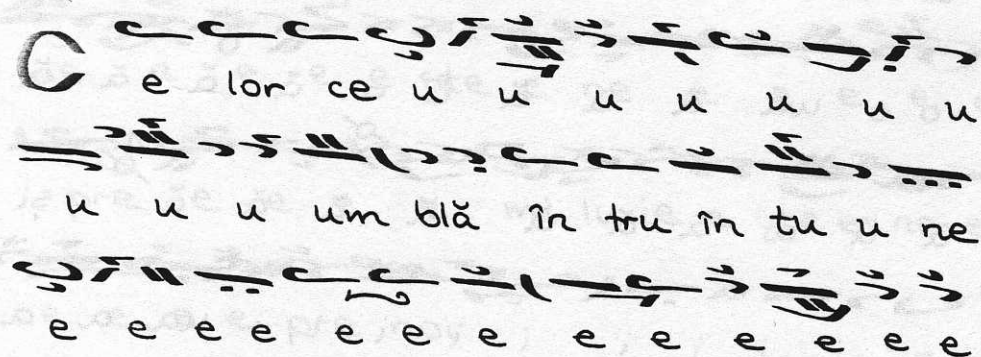 C e lor ce u u u u u u u
u u u um blă în tru în tu u ne
e e e e e e e e e e e e e